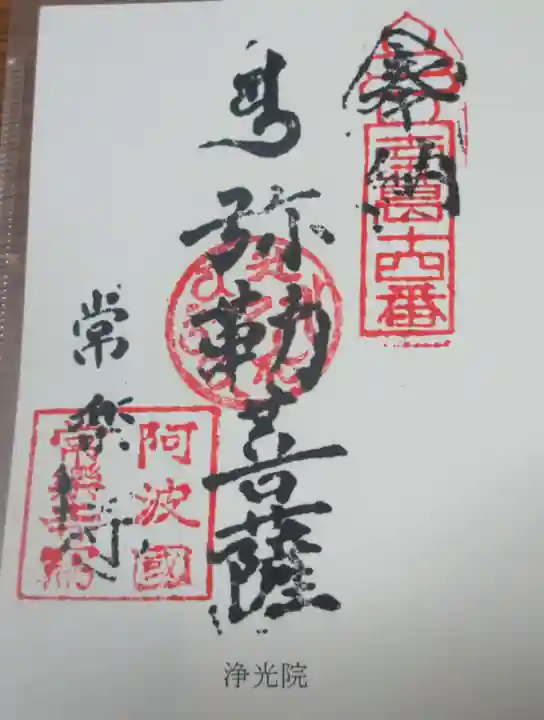 奉納
四国第十四番
弥勒菩薩
常楽寺
阿波國
常樂寺
浄光院